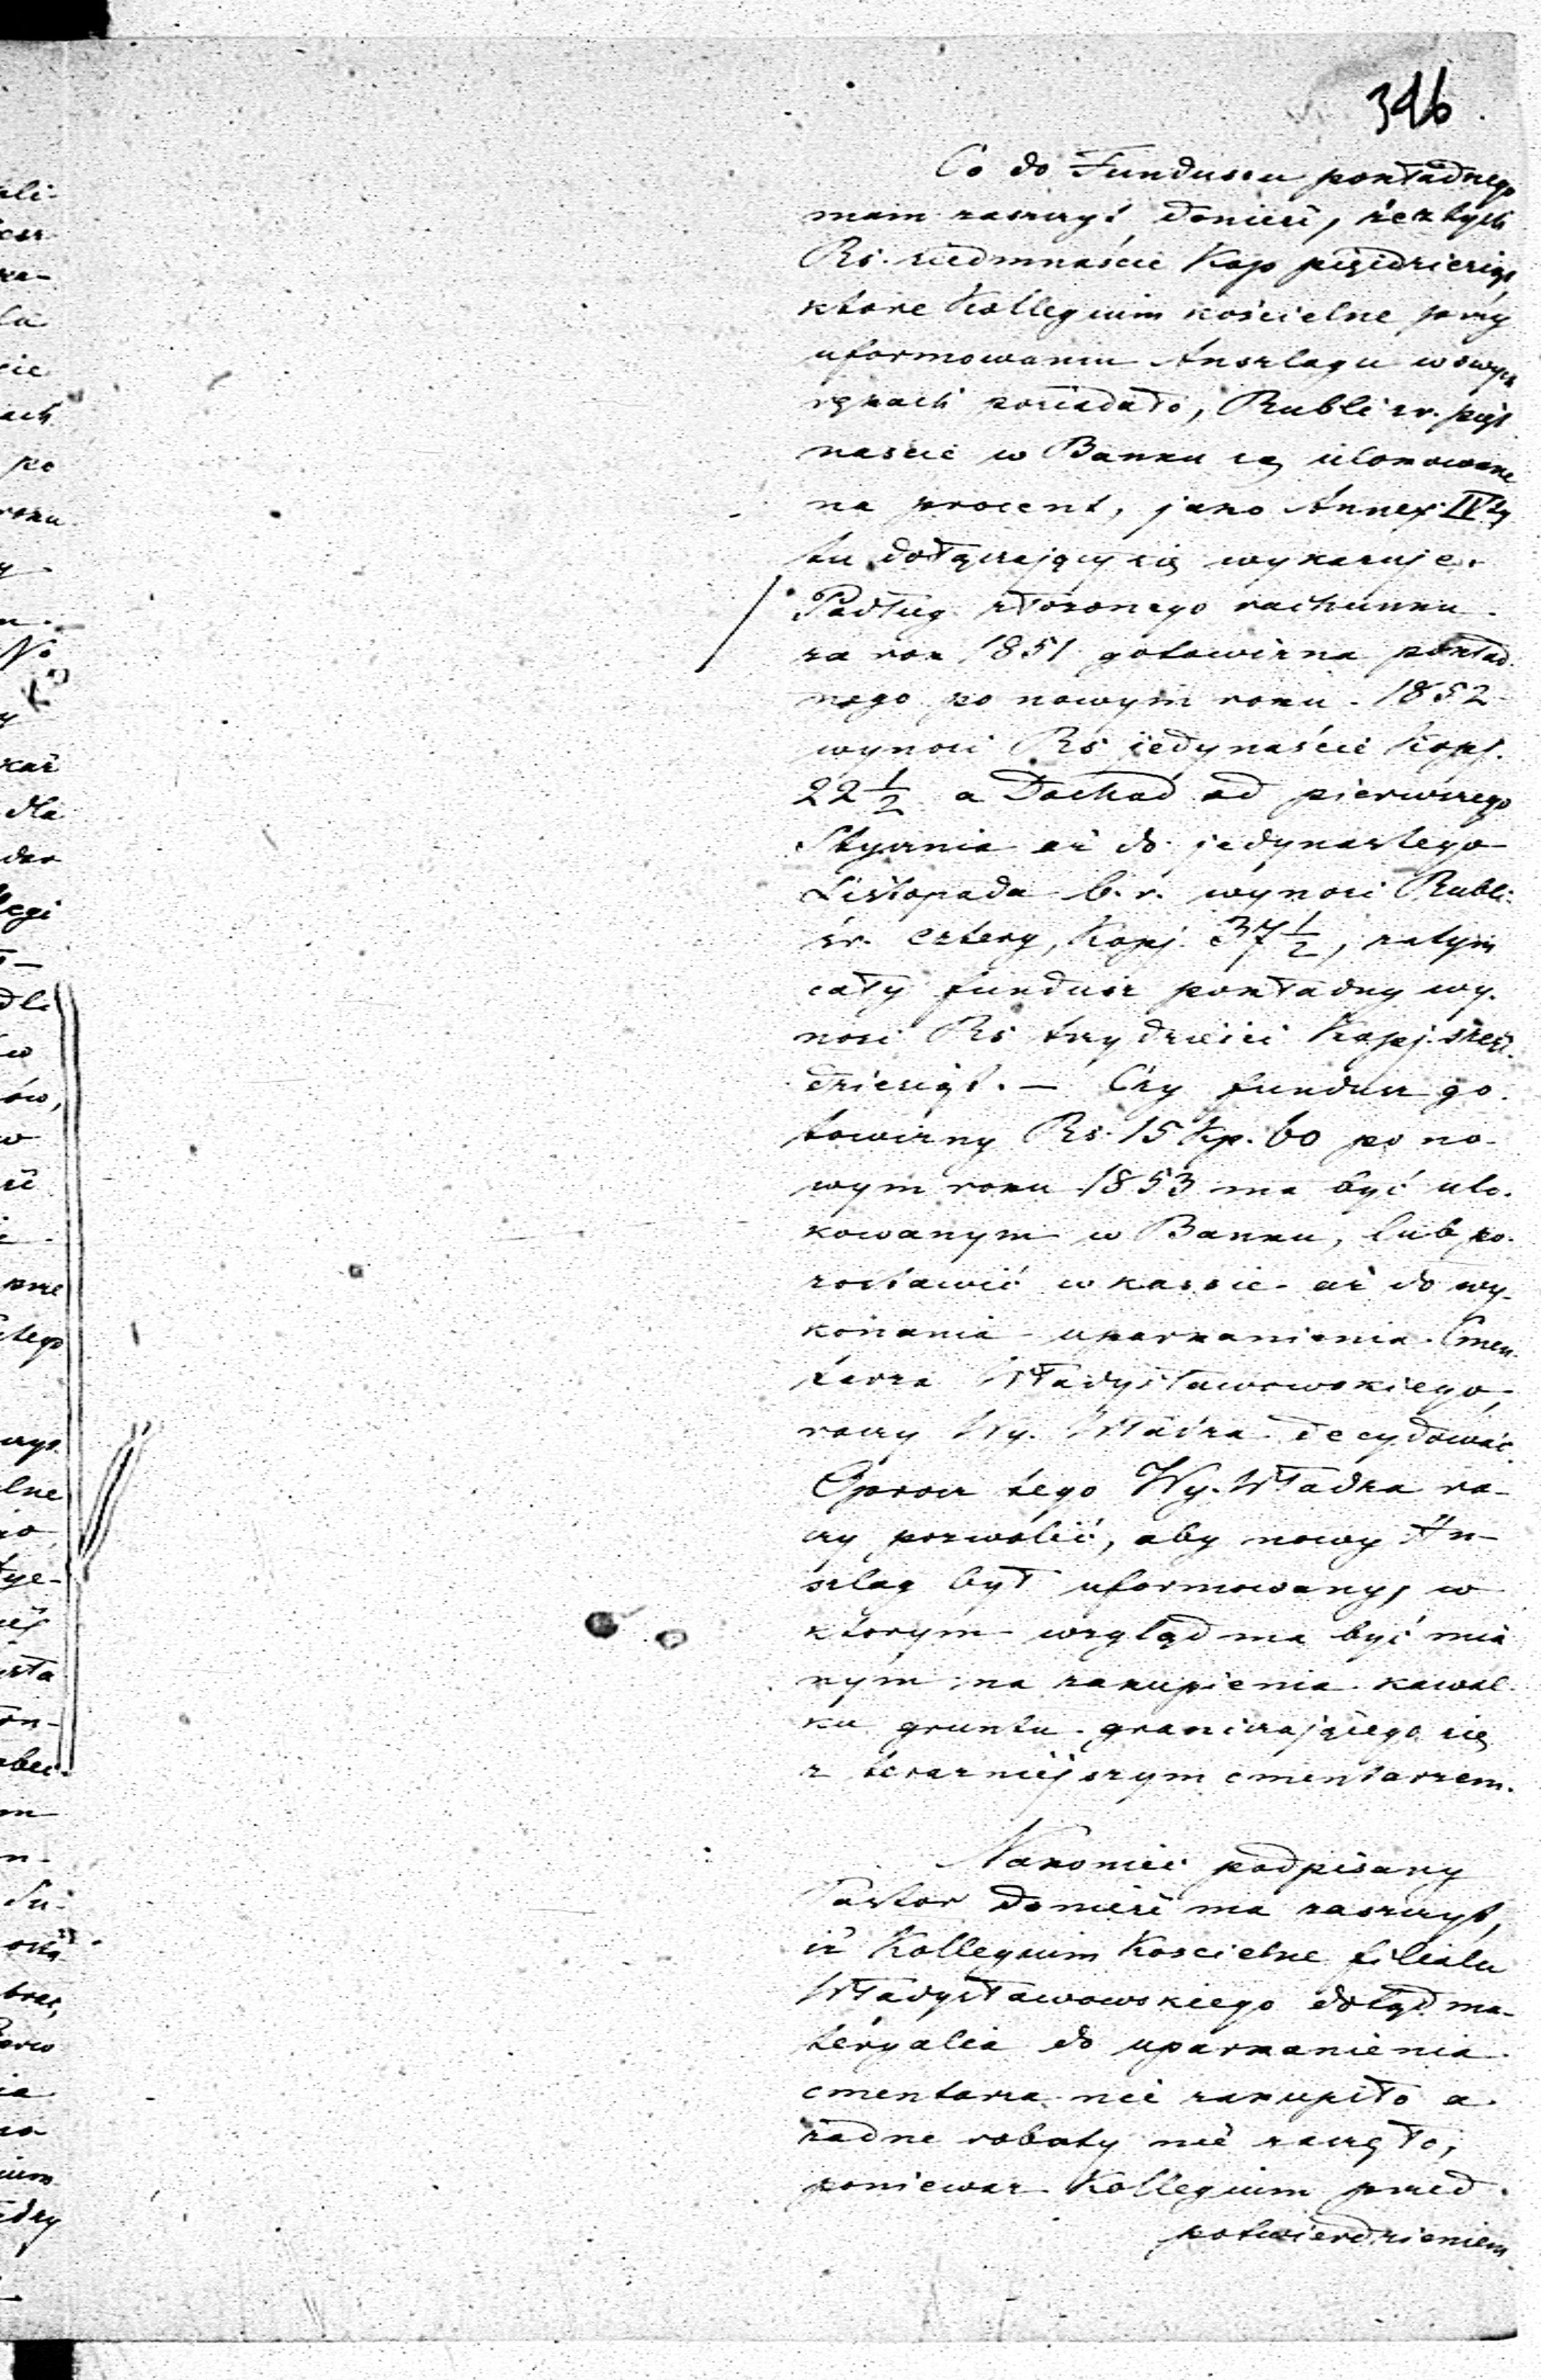 396.
Co do Funduszu pokładnego
mam zaszczyt donieść, że z tych
Rs. siedmnaście Kop pięćdziesiąt,
które Kollegium kościelne przy
uformowaniu Anszlagu w swych
rękach posiadało, Rubli sr. pięt
naście w Banku są ulokowane
na procent, jako Annex IVty
tu dołączający się wykazuje.
Podług złożonego rachunku
za rok 1851 gotowizna pokład
nego po nowym roku 1852
wynosi Rs jedynaście Kopj.
22 1/2 a Dochod od pierwszego
Stycznia aż do jedynastego
Listopada b. r. wynosi Rubli
sr. cztery, Kopj. 37 1/2, zatym
cały fundusz pokładny wy-
nosi Rs trzydzieści Kopj. sześć-
dziesiąt. — Czy fundusz go-
towizny Rs. 15 Kp. 60 po no-
wym roku 1853 ma być ulo-
kowanym w Banku, lub po-
zostawić w kassie aż do wy-
konania uparkanienia Cmen-
tarza Władysławowskiego,
raczy Wy. Władza decydować.
Oprocz tego Wy. Władza ra-
czy pozwolić, aby nowy An-
szlag był uformowany, w
którym wzgląd ma być mia
nym na zakupienia kawał-
ku gruntu graniczającego się
z terazniejszym cmentarzem.
Nakoniec podpisany
Pastor donieść ma zaszczyt,
iż Kollegium Kościelne filialu
Władysławowskiego dotąd ma-
teryalia do uparkanienia
cmentarza nie zakupiło a
żadne roboty nie zaczęło,
ponieważ Kollegium przed
potwierdzieniem